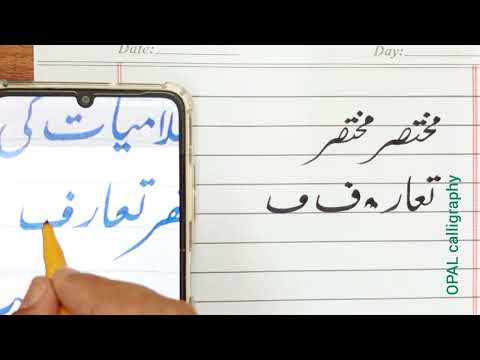 Date:
Day:
لامیات کی
مختصر مختصر
تعارف
تعار ف ف
OPAL calligraphy